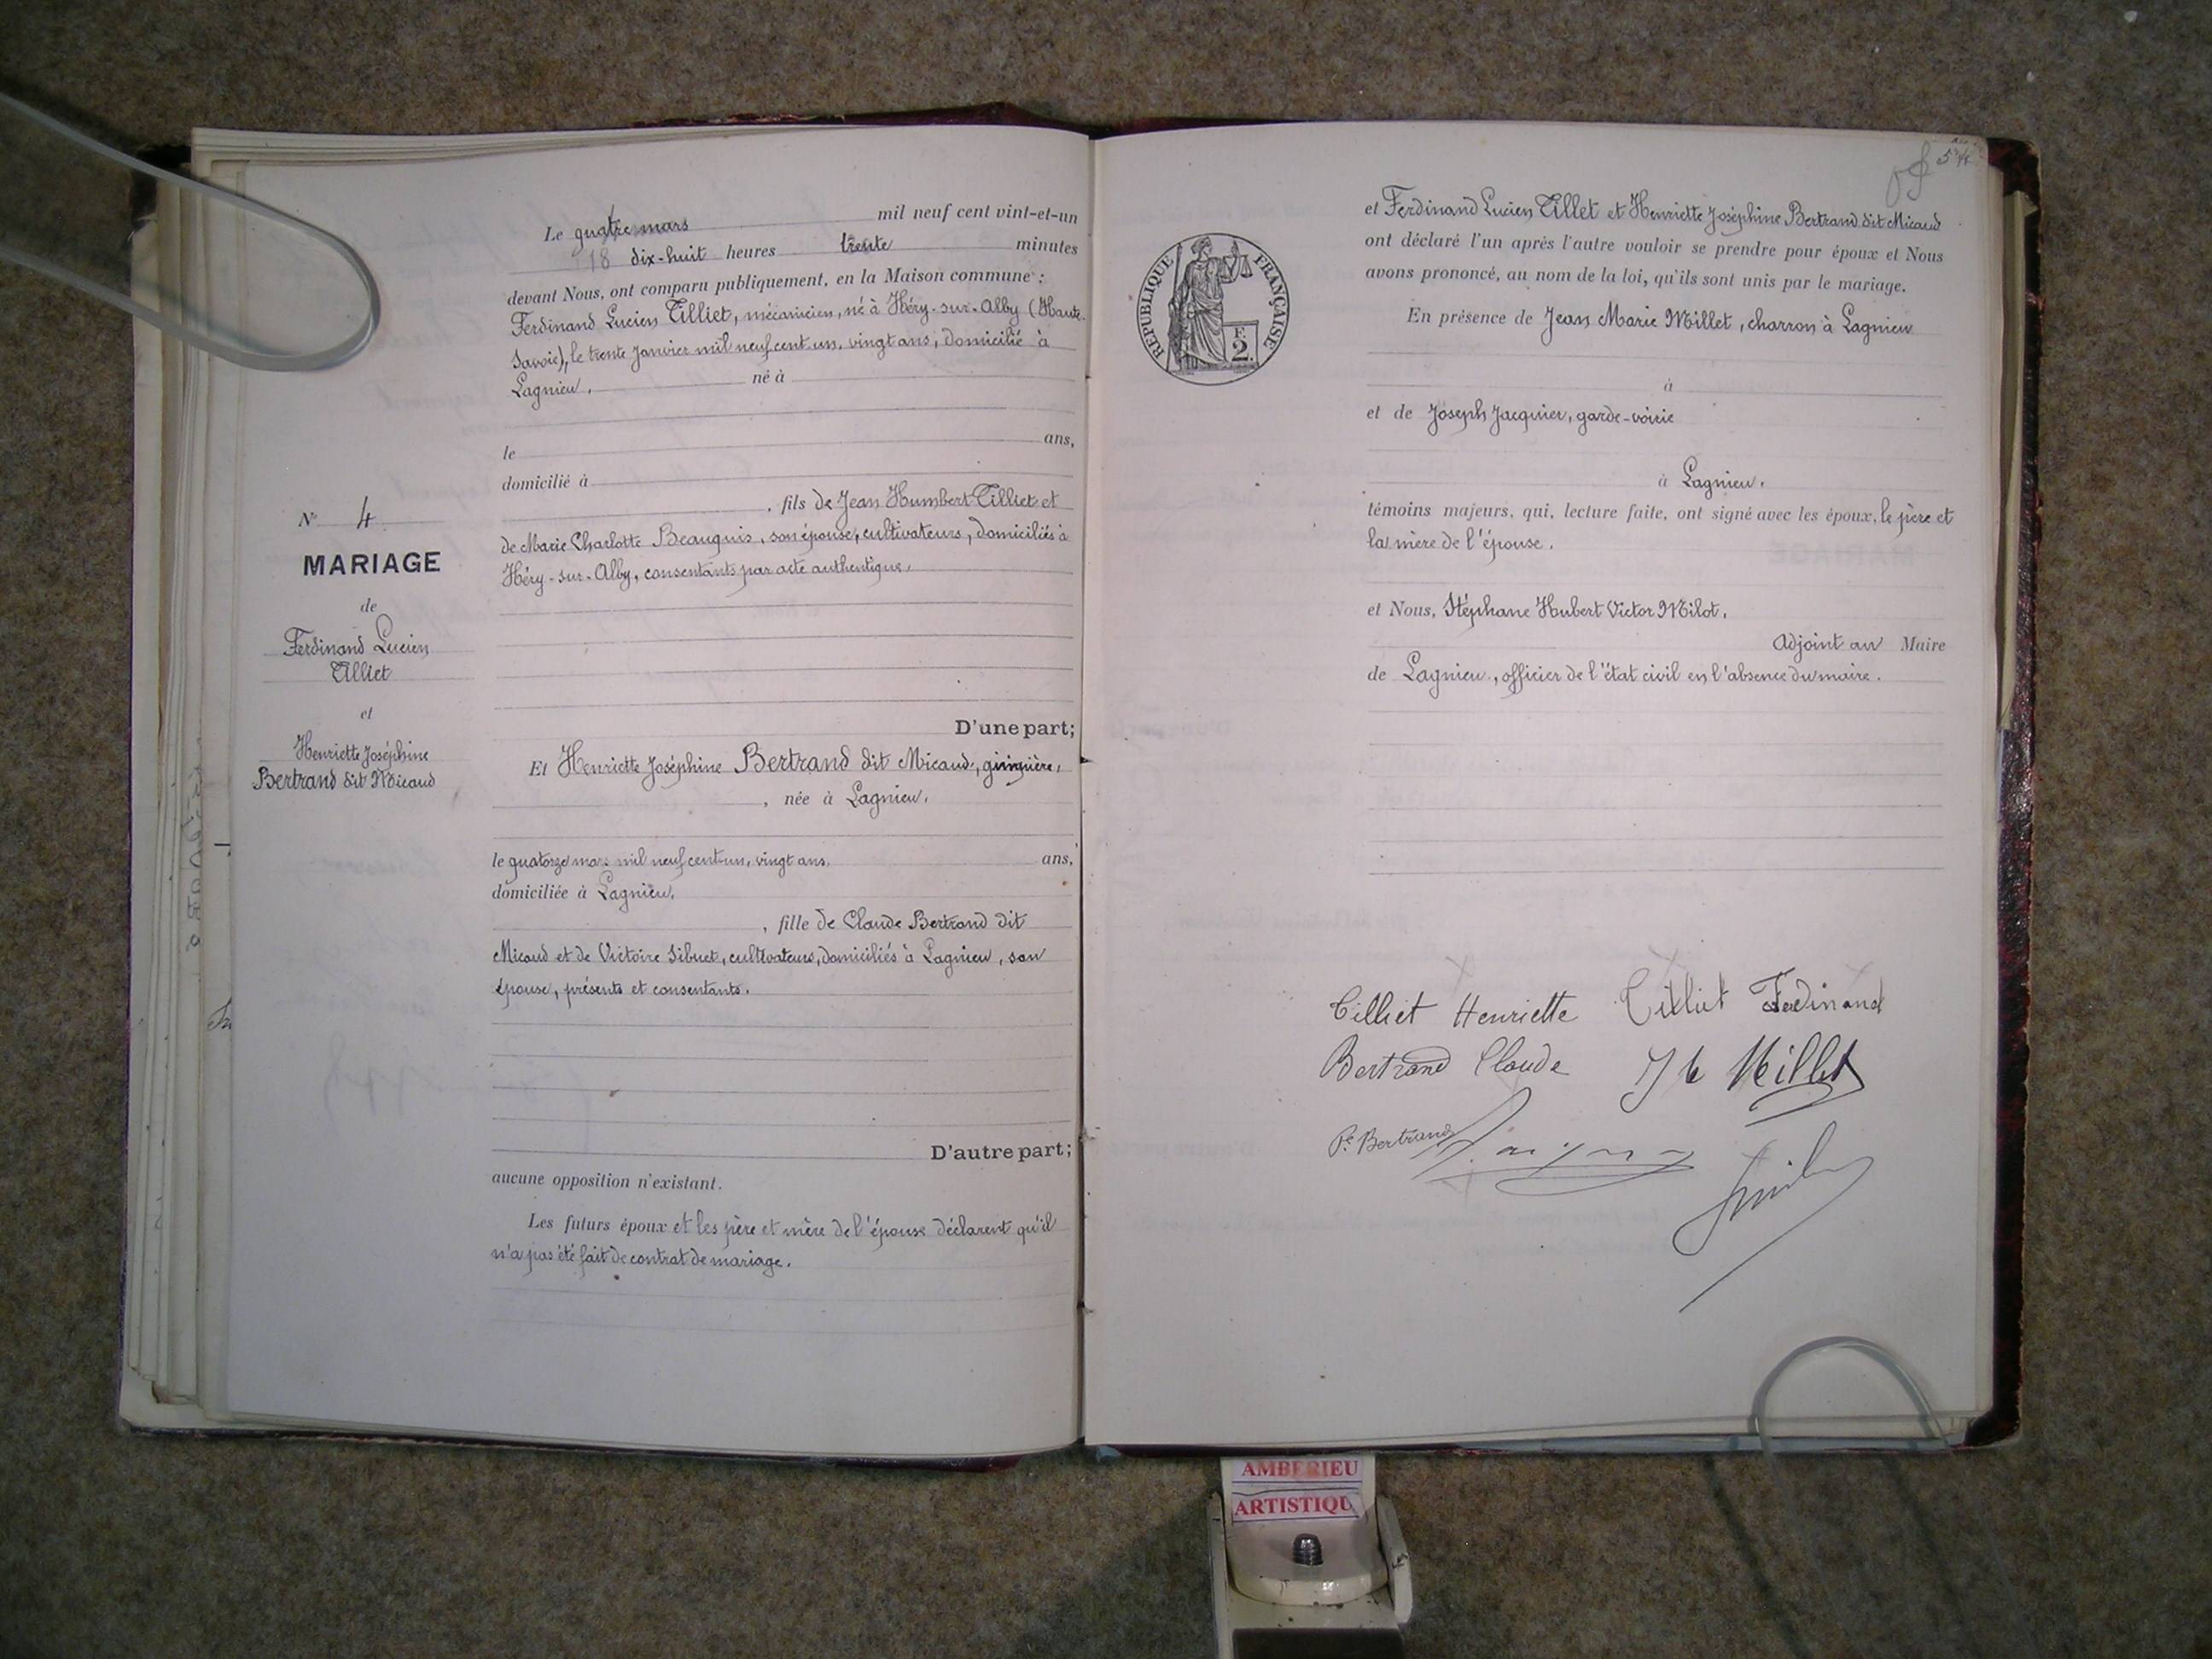 Le quatre mars mil neuf cent vint-et-un
18 dix-huit heures trente minutes
devant Nous, ont comparu publiquement, en la Maison commune :
Ferdinand Lucien Tilliet, mécanicien, né à Héry-sur-Alby (Haute-
Savoie), le trente Janvier mil neuf cent un, vingt ans, domicilié à
Lagnieu. né à
le ans,
domicilié à
, fils de Jean Humbert Tilliet et
de Marie Charlotte Beauquis, son épouse, cultivateurs, domiciliés à
Héry-sur-Alby, consentants par acte authentique,
N° 4
MARIAGE
de
Ferdinand Lucien
Tilliet
et
Henriette Joséphine
Bertrand dit Micaud
D'une part;
Et Henriette Joséphine Bertrand dit Micaud,
, née à Lagnieu,
le quatorze mars mil neuf cent un, vingt ans, ans,
domiciliée à Lagnieu,
, fille de Claude Bertrand dit
Micaud et de Victoire Sibuet, cultivateurs, domiciliés à Lagnieu, son
épouse, présents et consentants.
D'autre part;
aucune opposition n'existant.
Les futurs époux et les père et mère de l'épouse déclarent qu'il
n'a pas été fait de contrat de mariage.
54
et Ferdinand Lucien Tillet et Henriette Joséphine Bertrand dit Micaud
ont déclaré l'un après l'autre vouloir se prendre pour époux et Nous
avons prononcé, au nom de la loi, qu'ils sont unis par le mariage.
REPUBLIQUE FRANÇAISE
F.
2.
En présence de Jean Marie Millet, charron à Lagnieu
à
et de Joseph Jacquier, garde-voirie
à Lagnieu.
témoins majeurs, qui, lecture faite, ont signé avec les époux, le père et
la mère de l'épouse.
et Nous, Stéphane Hubert Victor Milot,
Adjoint au Maire
de Lagnieu, officier de l'état civil en l'absence du maire.
Tilliet Henriette Tilliet Ferdinand
Bertrand Claude Millet
Bertrand
AMBERIEU
ARTISTIQU